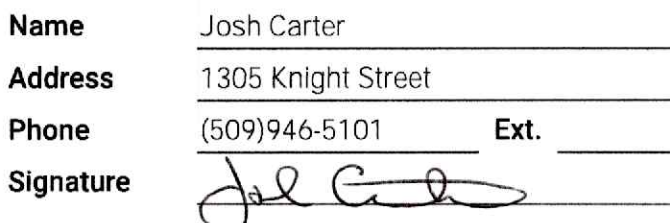 Name Josh Carter
Address 1305 Knight Street
Phone (509)946-5101 Ext.
Signature